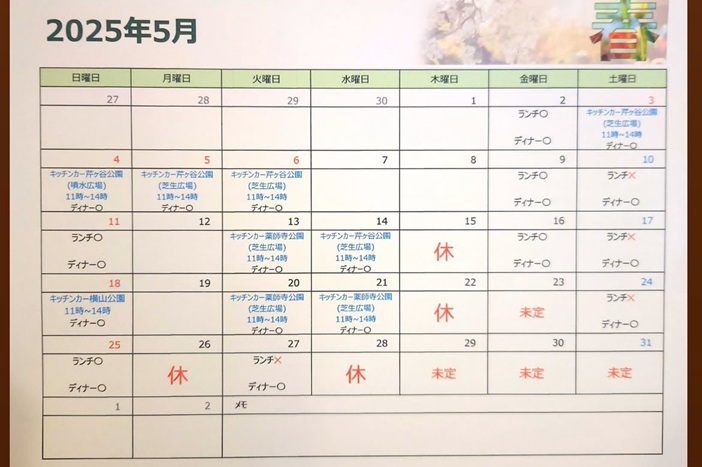 2025年5月
春
日曜日 月曜日 火曜日 水曜日 木曜日 金曜日 土曜日
27 28 29 30 1 2 3
ランチ〇 キッチンカー芹ヶ谷公園
(芝生広場)
11時~14時
ディナー〇 ディナー〇
4 5 6 7 8 9 10
キッチンカー芹ヶ谷公園 キッチンカー芹ヶ谷公園 キッチンカー芹ヶ谷公園 ランチ〇 ランチ×
(噴水広場) (芝生広場) (芝生広場)
11時~14時 11時~14時 11時~14時
ディナー〇 ディナー〇 ディナー〇 ディナー〇 ディナー〇
11 12 13 14 15 16 17
ランチ〇 キッチンカー薬師寺公園 キッチンカー芹ヶ谷公園 休 ランチ〇 ランチ×
(芝生広場) (芝生広場)
11時~14時 11時~14時
ディナー〇 ディナー〇 ディナー〇 ディナー〇 ディナー〇
18 19 20 21 22 23 24
キッチンカー横山公園 キッチンカー薬師寺公園 キッチンカー薬師寺公園 休 未定 ランチ×
11時~14時 (芝生広場) (芝生広場)
11時~14時 11時~14時
ディナー〇 ディナー〇 ディナー〇 ディナー〇
25 26 27 28 29 30 31
ランチ〇 休 ランチ× 休 未定 未定 未定
ディナー〇 ディナー〇
1 2 メモ